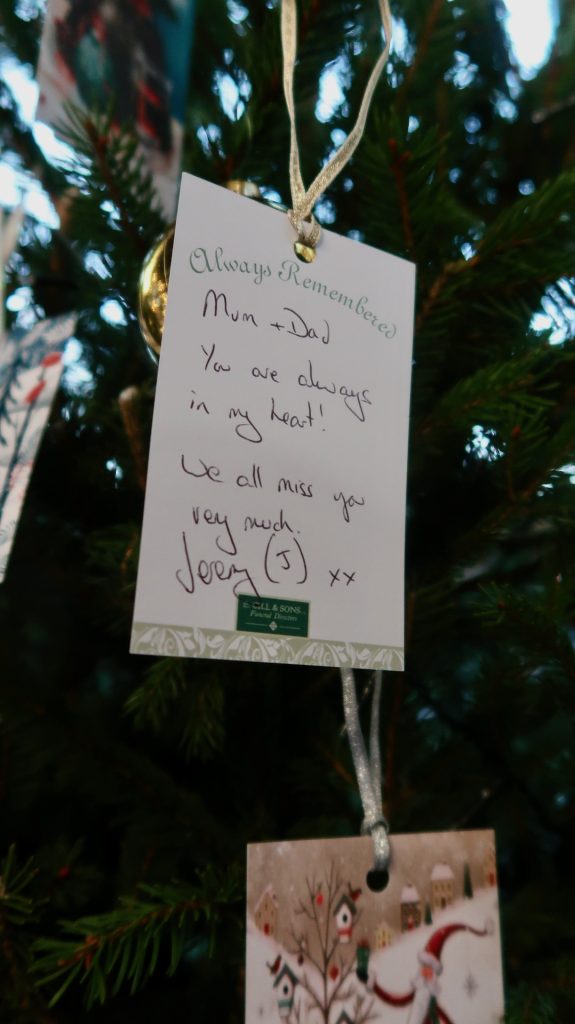 Always Remembered
Mum + Dad
You are always
in my heart!
We all miss you
very much.
Jeremy (J) xx
E. GILL & SONS
Funeral Directors